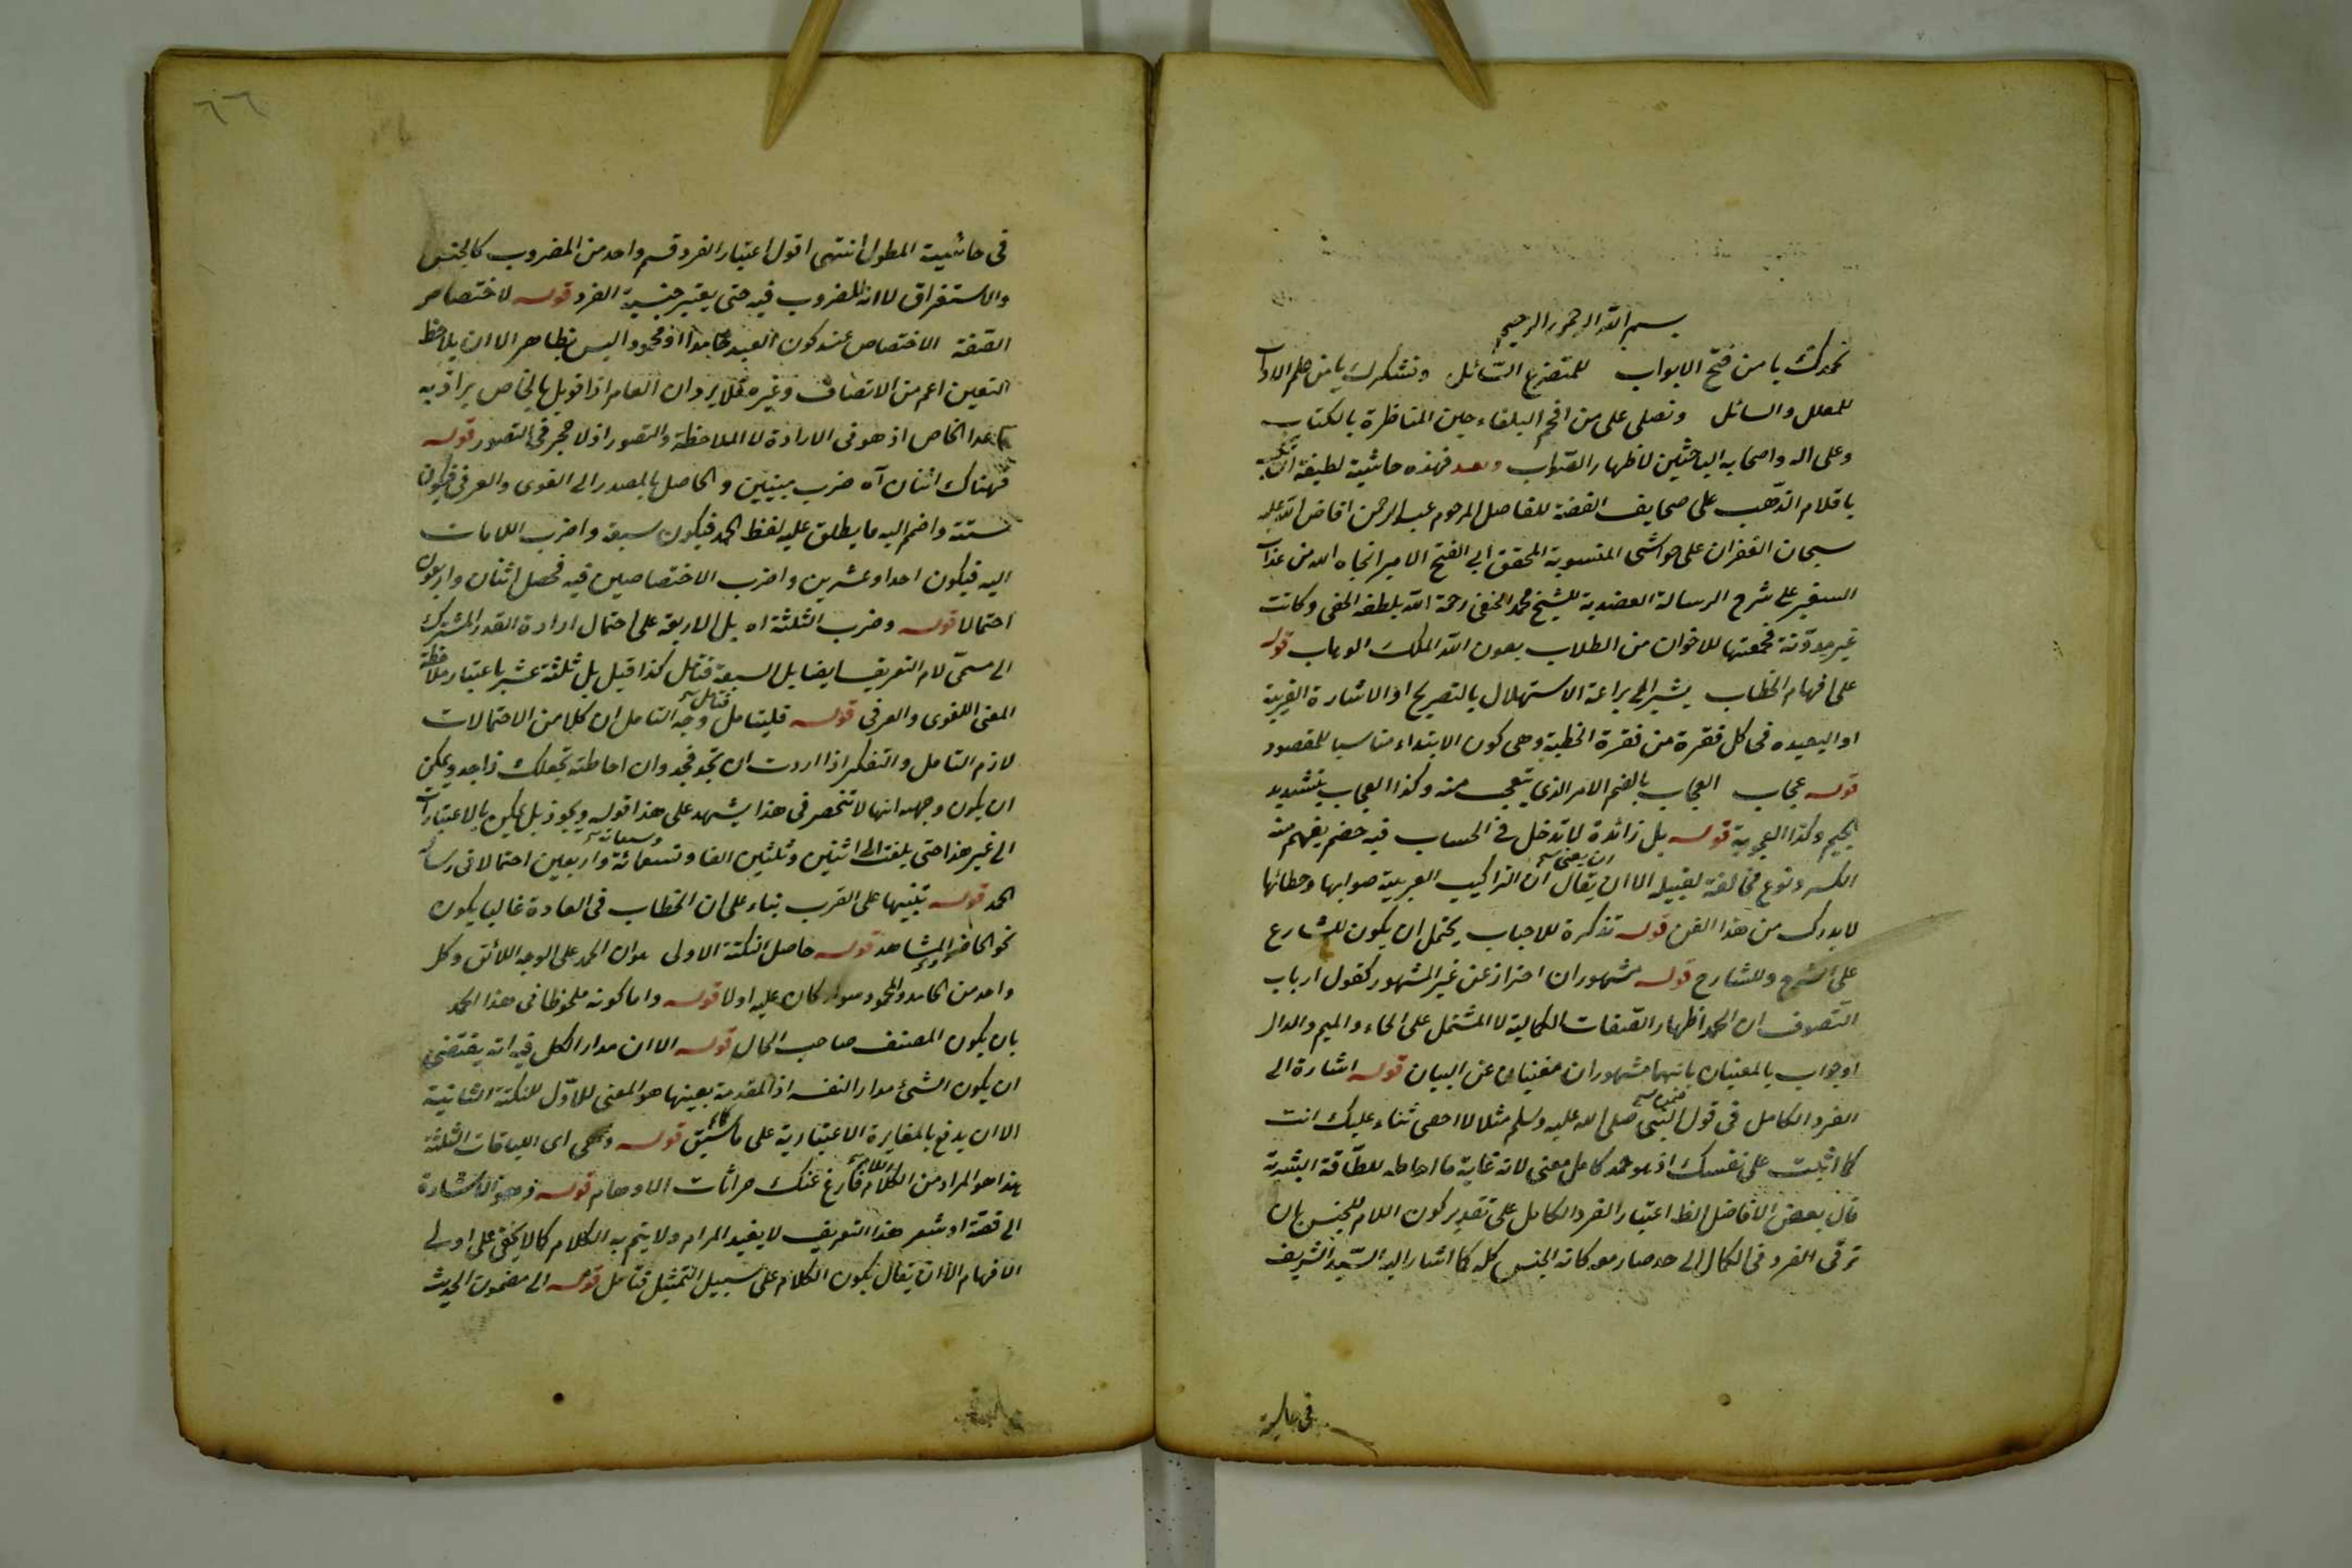 بسم الله الرحمن الرحيم
نحمدك يا من فتح الابواب للمتضرع السائل ونشكرك يا من علم الاداب
للمعلل والسائل ونصلى على من افحم البلغاء حين المناظرة بالكتاب
وعلى اله واصحابه الباحثين لاظهار الصواب وبعد فهذه حاشية لطيفة
باقلام الذهب على صحايف الفضة للفاضل المرحوم عبد الرحمن افاض الله عليه
سبحان الغفران على حواشى المنسوبة للمحقق ابى الفتح الامير انجاه الله من عذاب
السعير على شرح الرسالة العضدية للشيخ محمد الحنفى رحمة الله بلطفه الخفى وكانت
غير مدونة فجمعتها للاخوان من الطلاب بعون الله الملك الوهاب قوله
على افهام الخطاب يشير الى براعة الاستهلال بالتصريح او الاشارة القريبة
او البعيده فى كل فقرة من فقرة الخطبة وهى كون الابتداء مناسبا للمقصود
قوله عجاب العجاب بالضم الامر الذى يتعجب منه وكذا العجاب بتشديد
الجيم وكذا العجوبة قوله بل زائدة لا تدخل فى الحساب فيه حضم يفهم منه
الكسر ونوع مخالفة لقبيله الا ان يقال ان التراكيب العربية صوابها وخطائها
لا يدرك من هذا الفن قوله تذكرة للاحباب يحتمل ان يكون للشارع
على الشرح وللشارح قوله مشهوران احتراز عن غير المشهور كقول ارباب
التصوف ان الحمد اظهار الصفات الكمالية لا المشتمل على الحاء والميم والدال
او جواب بالمعنيان بانهما مشهوران مغنيان عن البيان قوله اشارة الى
الفرد الكامل فى قول النبى صلى الله عليه وسلم مثلا لا احصى ثناء عليك انت
كما اثنيت على نفسك اذ هو حمد كامل معنى لانه غاية ما احاطه للطاقة البشرية
قال بعض الافاضل الظ اعتبار الفرد الكامل على تقدير كون اللام للجنس بان
ترقى الفرد فى الكمال الى حد صار معه كانه الجنس كله كما اشار اليه السيد الشريف
فى حاشية
٦٦
فى حاشية المطول انتهى اقول اعتبار الفرد قسم واحد من المضروب كالجنس
والاستغراق لا انه المضروب فيه حتى يعتبر جنسية الفرد قوله لاختصاص
الصفة الاختصاص عند كون العبد حامدا او محمودا ليس بظاهر الا ان يلاحظ
التعين اعم من الاتصاف وغيره فلا يرد ان العام اذا قوبل بالخاص يراد به
ما عدا الخاص اذ هو فى الارادة لا الملاحظة والتصور اذ لا حجر فى التصور قوله
فهناك اثنان آه ضرب مبنيين والحاصل بالمصدر الى اللغوى والعرفى فيكون
ستة واضم اليه ما يطلق عليه لفظ الحمد فيكون سبعة واضرب اللامات
اليه فيكون احدا وعشرين واضرب الاختصاصين فيه فحصل اثنان واربعون
احتمالا قوله وضرب الثلثة اه بل الاربعة على احتمال ارادة القدر المشترك
الى مسمى لام التعريف ايضا بل السبعة فتامل كذا قيل بل ثلثة عشر باعتبار ملاحظة
المعنى اللغوى والعرفى قوله فليتامل وجه التامل ان كلا من الاحتمالات
لازم التامل والتفكر اذا اردت ان تجد فجد وان احاطته تجعلك ذا جد ويمكن
ان يكون وجهه انها لا تنحصر فى هذا يشهد على هذا قوله ويجوز بل يمكن بالاعتبارات
الى غير هذا حتى بلغت الى اثنين وثلثين الفا وتسعمائة واربعين احتمالا فى رسالة
الحمد قوله تنبيها على القرب بناء على ان الخطاب فى العادة غالبا يكون
نحو الحاضر المشاهد قوله حاصل النكتة الاولى هو ان الحمد على الوجه اللائق وكل
واحد من الحامد والمحمود سواء كان عليه اولا قوله واما كونه ملحوظا فى هذا الحمد
بان يكون المصنف صاحب الحال قوله الا ان مدار الكل فيه انه يقتضى
ان يكون الشئ مدار النفسه اذ المقدمة بعينها هو المعنى للاول للنكتة الثانية
الا ان يدفع بالمغايرة الاعتبارية على ما سبق قوله وهى اى اللياقات الثلثة
هذا هو المراد من الكلام فارغ عنك خرافات الاوهام قوله فهو الاشارة
الى قصة اوشعر هذا التعريف لا يفيد المرام ولا يتم به الكلام كما لا يخفى على اولى
الافهام الا ان يقال يكون الكلام على سبيل التمثيل فتامل قوله الى مضمون الحديث